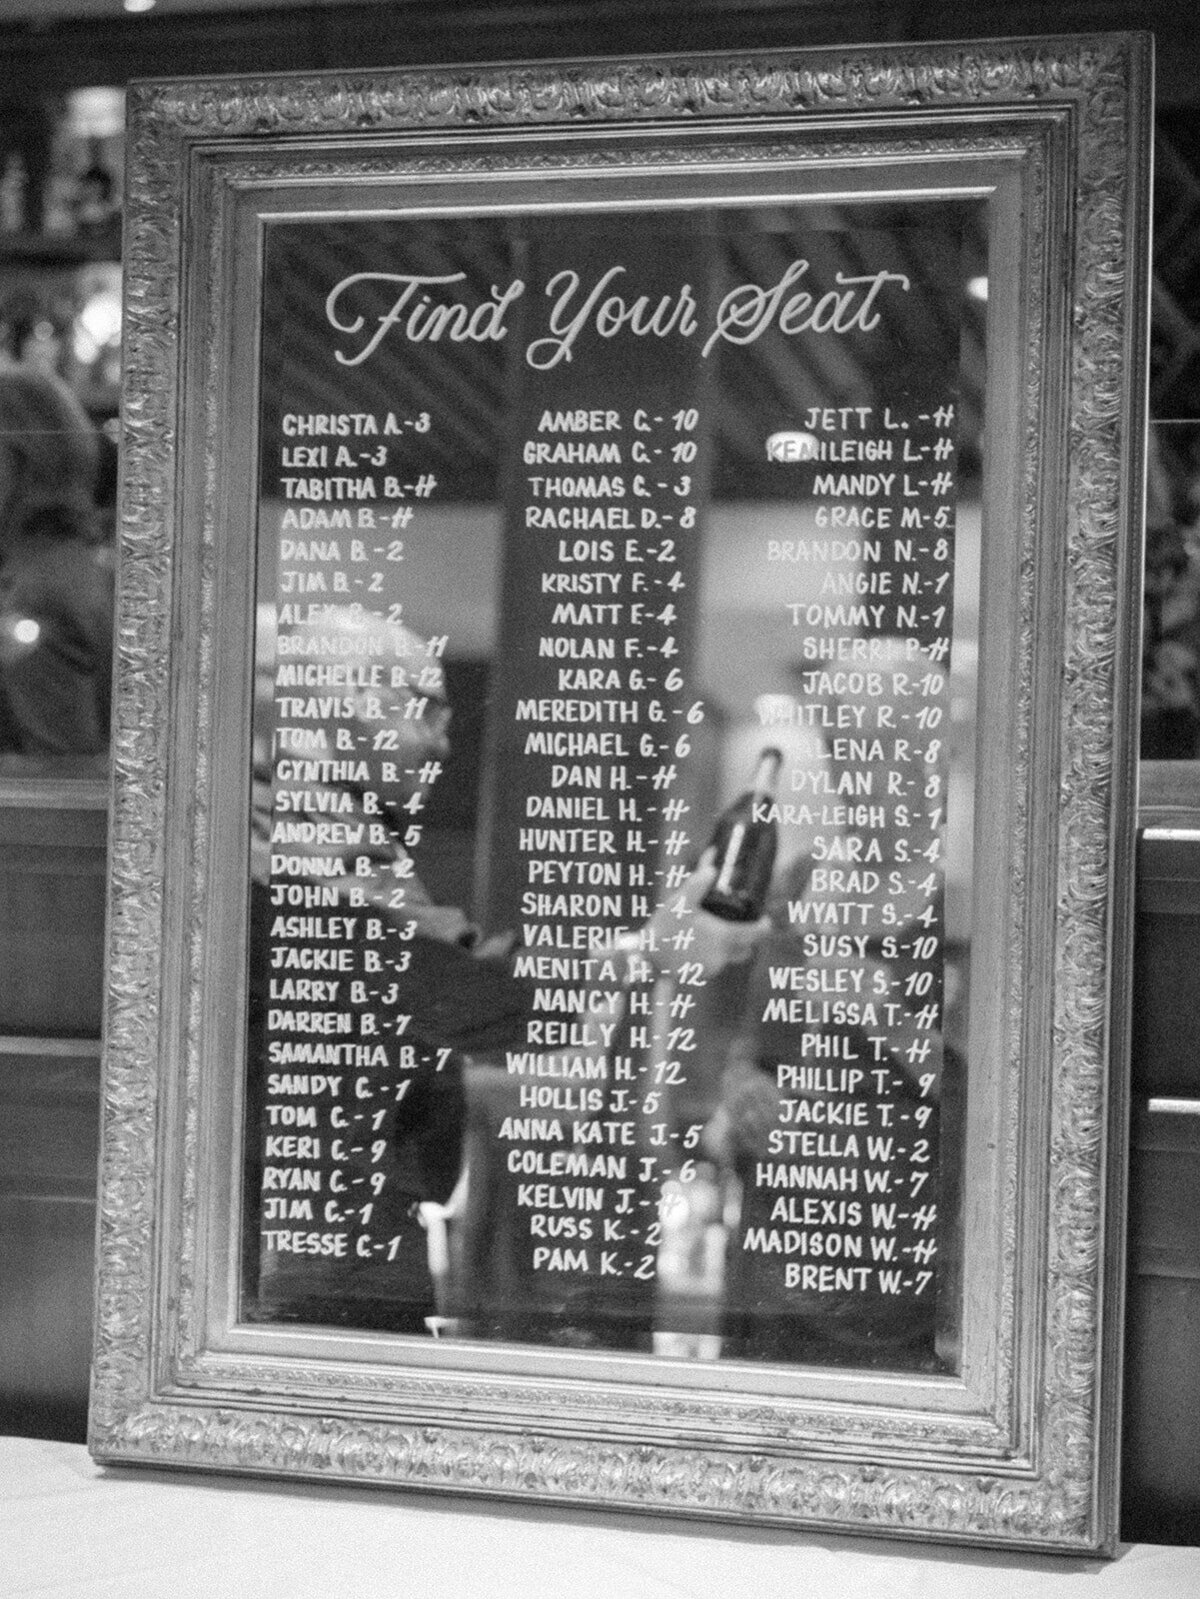 Find Your Seat
CHRISTA A.-3
LEXI A.-3
TABITHA B.-H
ADAM B.-H
DANA B.-2
JIM B.-2
ALEX B.-2
BRANDON B.-11
MICHELLE B.-12
TRAVIS B.-11
TOM B.-12
CYNTHIA B.-H
SYLVIA B.-4
ANDREW B.-5
DONNA B.-2
JOHN B.-2
ASHLEY B.-3
JACKIE B.-3
LARRY B.-3
DARREN B.-7
SAMANTHA B.-7
SANDY C.-1
TOM C.-1
KERI C.-9
RYAN C.-9
JIM C.-1
TRESSE C.-1
AMBER C.-10
GRAHAM C.-10
THOMAS C.-3
RACHAEL D.-8
LOIS E.-2
KRISTY F.-4
MATT F.-4
NOLAN F.-4
KARA G.-6
MEREDITH G.-6
MICHAEL G.-6
DAN H.-H
DANIEL H.-H
HUNTER H.-H
PEYTON H.-H
SHARON H.-4
VALERIE H.-H
MENITA H.-12
NANCY H.-H
REILLY H.-12
WILLIAM H.-12
HOLLIS J.-5
ANNA KATE J.-5
COLEMAN J.-6
KELVIN J.-H
RUSS K.-2
PAM K.-2
JETT L.-H
L.-H
MANDY L.-H
GRACE M.-5
BRANDON N.-8
ANGIE N.-1
TOMMY N.-1
SHERRI P.-H
JACOB R.-10
WHITLEY R.-10
ALENA R.-8
DYLAN R.-8
KARA-LEIGH S.-1
SARA S.-4
BRAD S.-4
WYATT S.-4
SUSY S.-10
WESLEY S.-10
MELISSA T.-H
PHIL T.-H
PHILLIP T.-9
JACKIE T.-9
STELLA W.-2
HANNAH W.-7
ALEXIS W.-H
MADISON W.-H
BRENT W.-7